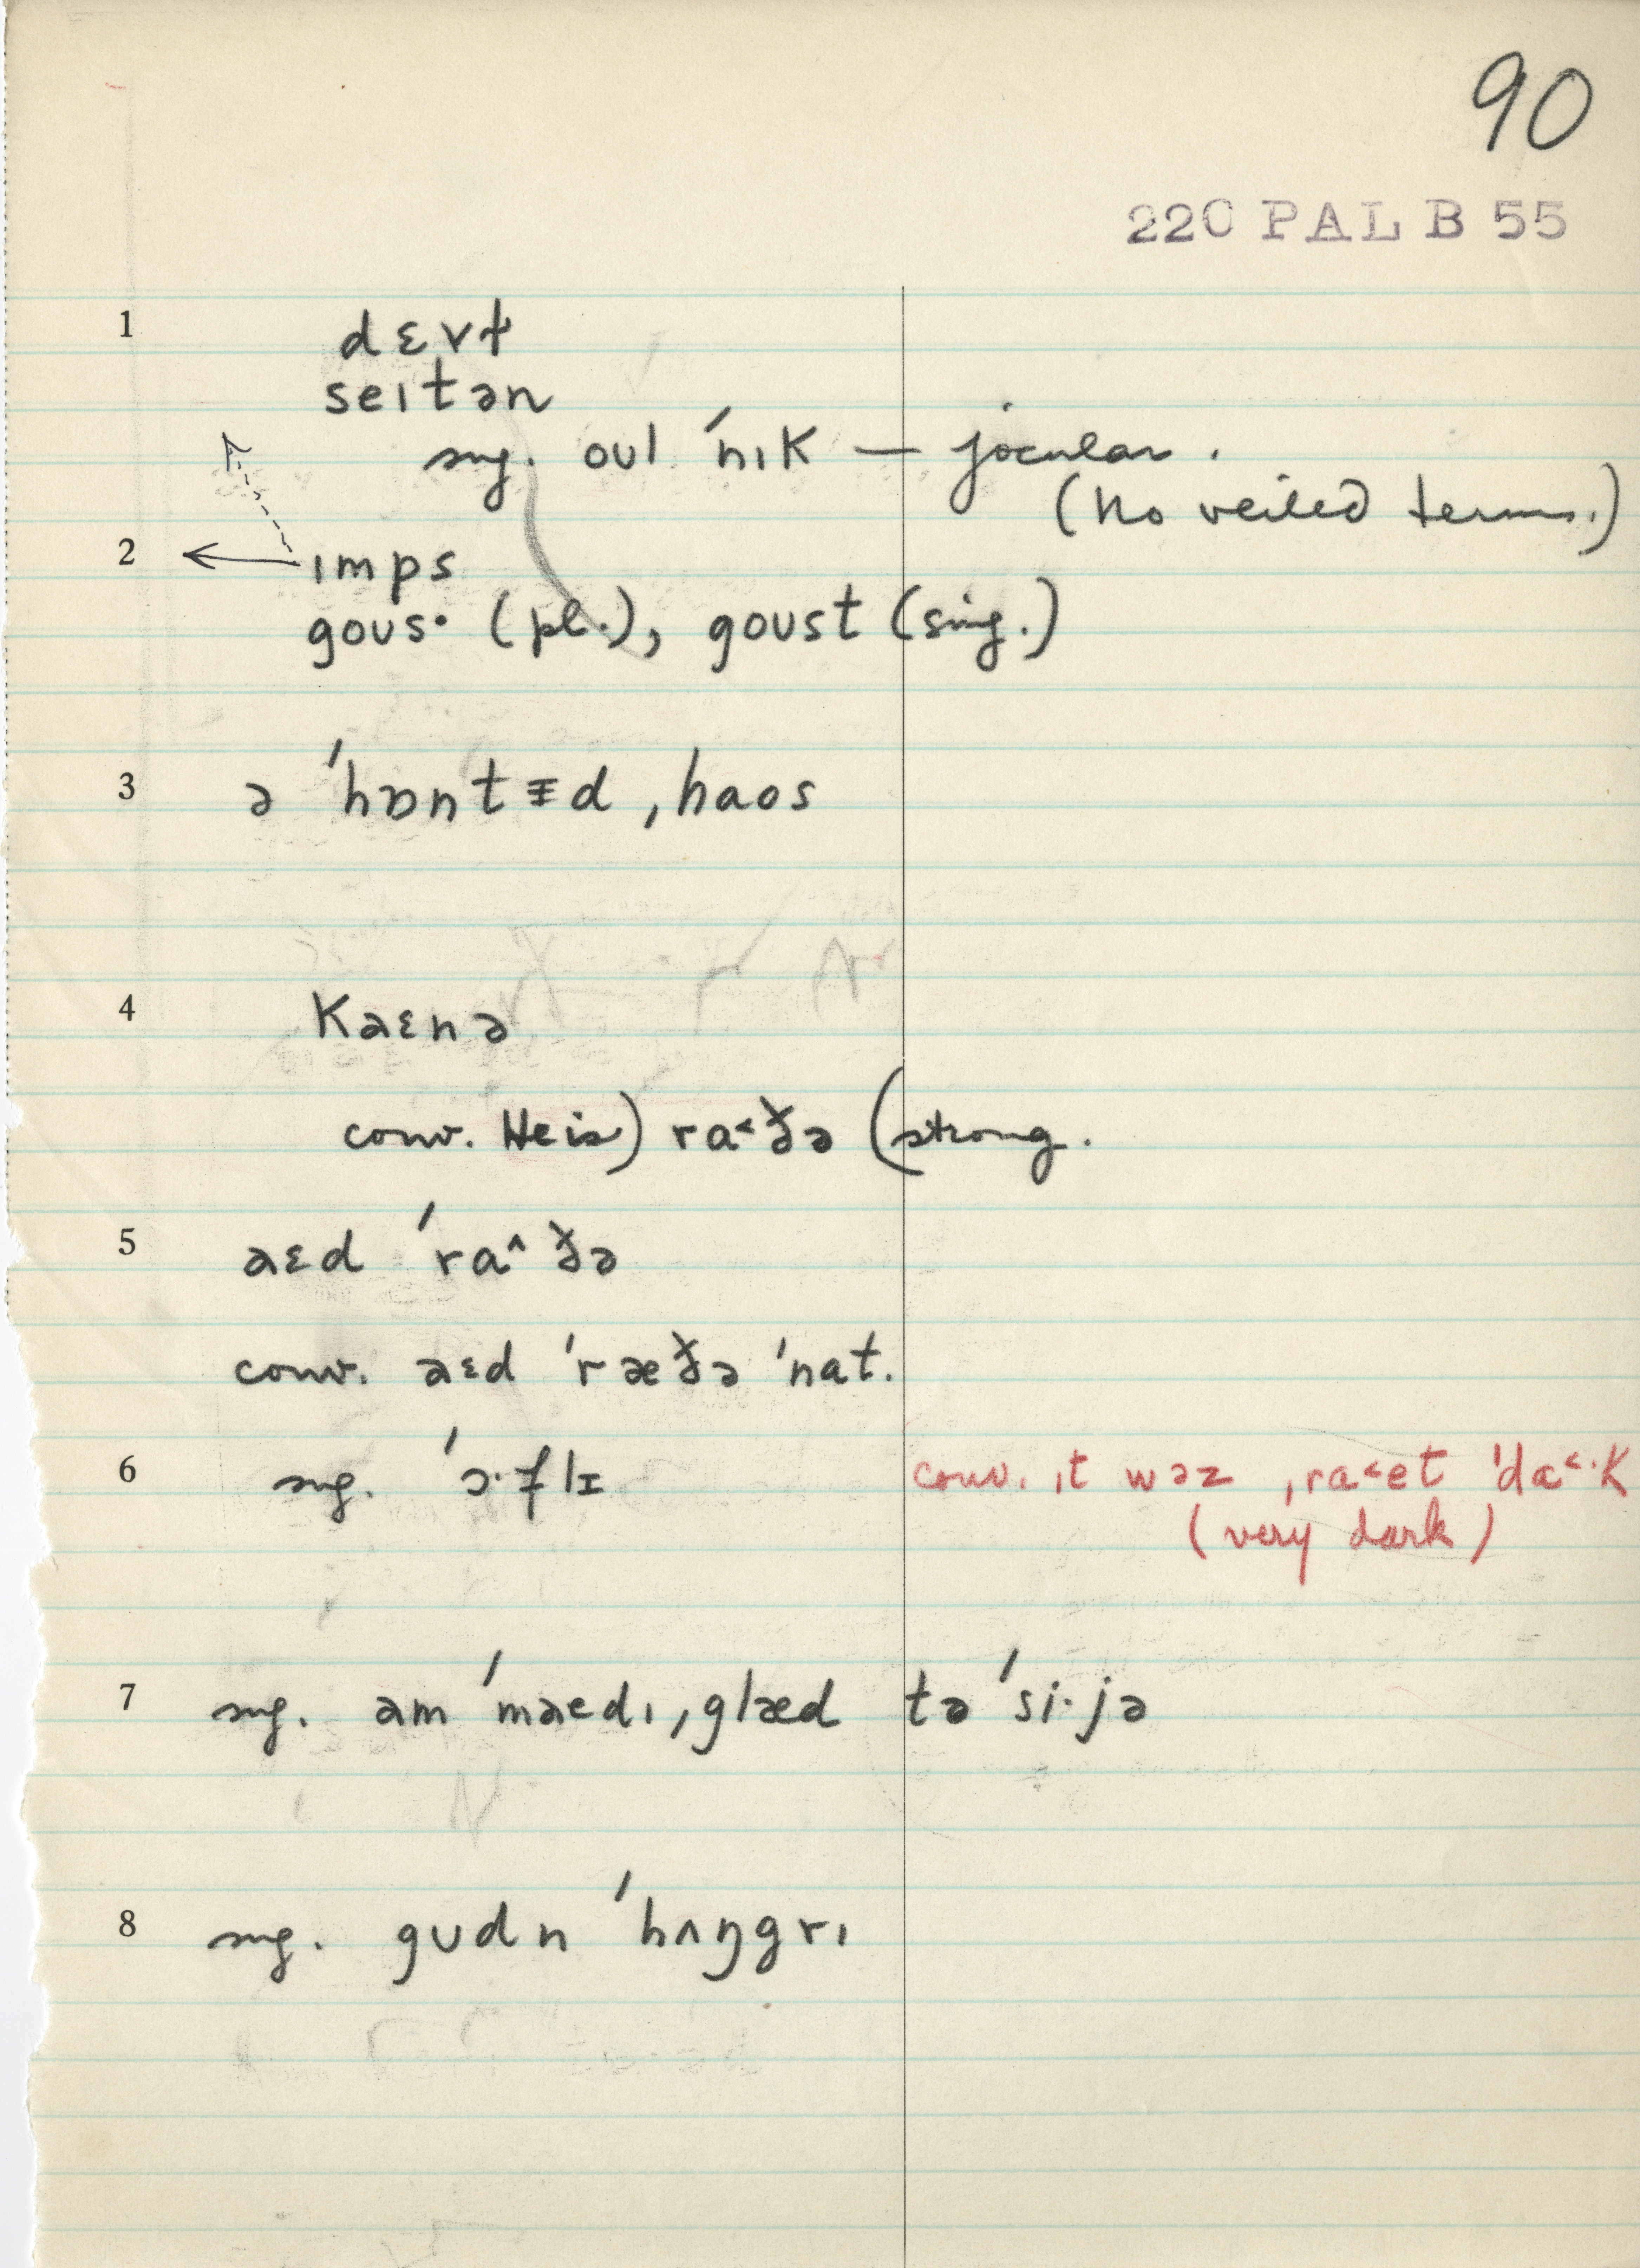 90
220 PAL B 55
1 dɛvɫ
seɪtən
sug. oʊl ˈnɪk — jocular.
(No veiled terms.)
2 ɪmps
goʊs· (pl.), goʊst (sing.)
3 ə ˈhɒntɪd ˌhaos
4 kaɛnə
conv. He is) ra˂ðə (strong.
5 aɛd ˈra˄ðə
conv. aɛd ˈræðə ˈnat.
6 sug. ˈɔ·flɪ conv. ɪt wəz ˌra˂et ˈda˂·k
(very dark)
7 sug. am ˈmaedɪ ˌglæd tə ˈsi·jə
8 sug. gʊdn ˈhʌŋgrɪ